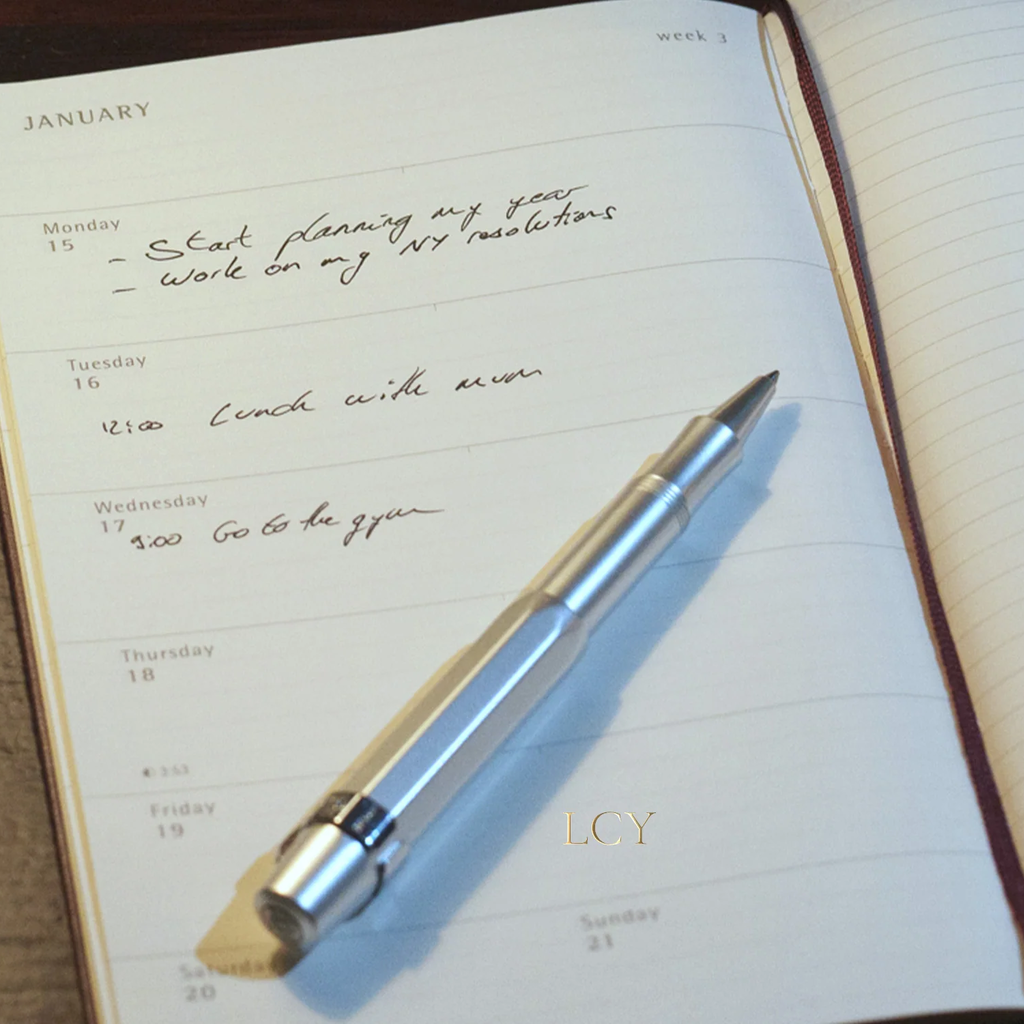 week 3
JANUARY
Monday
15
- Start planning my year
- work on my NY resolutions
Tuesday
16
12:00 Lunch with mum
Wednesday
17
9:00 Go to the gym
Thursday
18
3:53
Friday
19
LCY
Saturday
20
Sunday
21